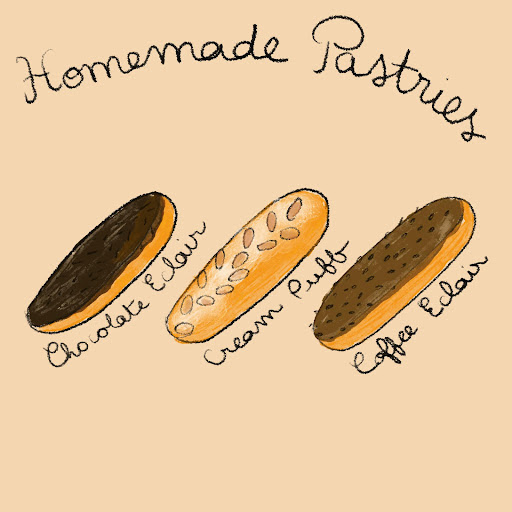 Homemade Pastries
Chocolate Eclair
Cream Puff
Coffee Eclair